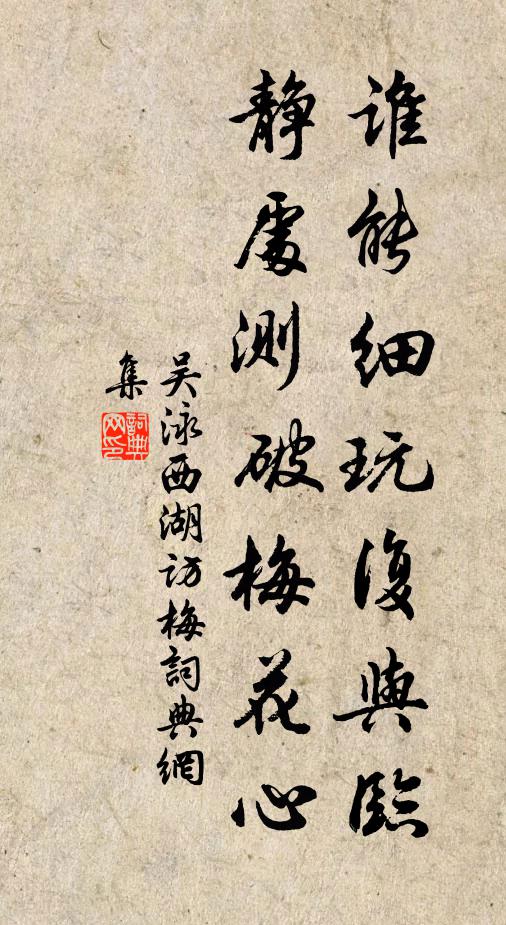 谁能细玩復與臨
静處测破梅花心
吴泳西湖访梅詞典網
集
詞典网印